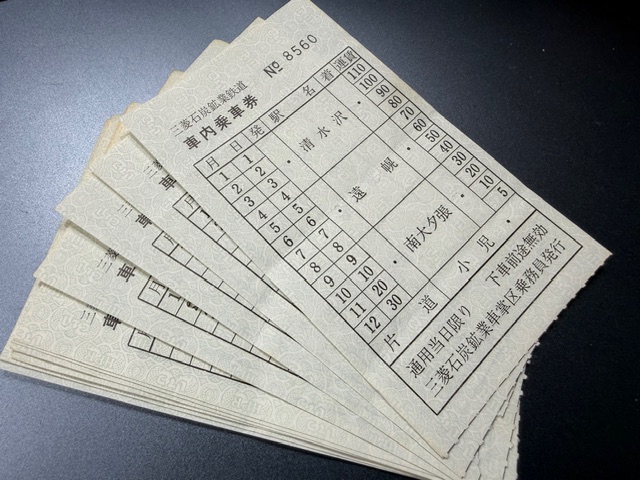 三菱石炭鉱業鉄道
車内乗車券
№ 8560
月 日 発 駅 名 着 運賃
1 1 ・ 清水沢 ・ 110
2 2 100
3 3 90
4 4 ・ 遠幌 ・ 80
5 5 70
6 6 60
7 7 ・ 南大夕張 ・ 50
8 8 40
9 9 30
10 10 20
11 20 10
12 30 5
片道 小児 ・
通用当日限り 下車前途無効
三菱石炭鉱業車掌区乗務員発行
三菱
車
三
車
三
車
月
1